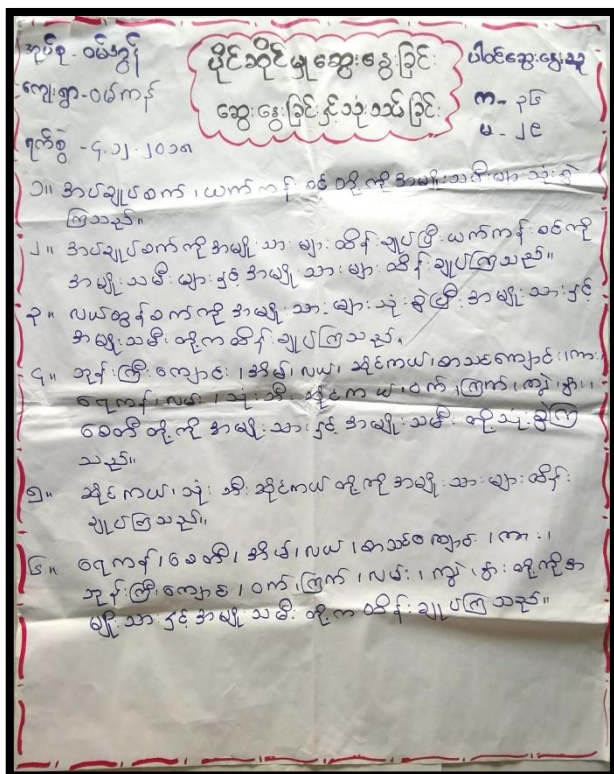 အုပ်စု - ဝမ်ကွန်
ကျေးရွာ - ဝမ်ကန်
ရက်စွဲ - ၄.၁၂.၂၀၁၈
ပိုင်ဆိုင်မှုဆွေးနွေးခြင်း
ဆွေးနွေးခြင်းနှင့်သုံးသပ်ခြင်း
ပါဝင်ဆွေးနွေးသူ
က - ၃၆
မ - ၂၉
၁။ အပ်ချုပ်စက်၊ ယက်ကန်းစင် တို့ကို အမျိုးသမီးများ သုံးစွဲ
ကြသည်။
၂။ အပ်ချုပ်စက်ကို အမျိုးသားများ ထိန်းချုပ်ပြီး ယက်ကန်းစင်ကို
အမျိုးသမီးများနှင့် အမျိုးသားများ ထိန်းချုပ်ကြသည်။
၃။ လယ်ထွန်စက်ကို အမျိုးသားများသုံးစွဲပြီး အမျိုးသားနှင့်
အမျိုးသမီးတို့က ထိန်းချုပ်ကြသည်။
၄။ ဘုန်းကြီးကျောင်း၊ အိမ်၊ လယ်၊ ဆိုင်ကယ်၊ စာသင်ကျောင်း၊ ကား၊
ရေကန်၊ လမ်း၊ သုံးဘီးဆိုင်ကယ်၊ ဝက်၊ ကြက်၊ ကျွဲ၊ နွား၊
စေတီ တို့ကို အမျိုးသားနှင့် အမျိုးသမီး တို့သုံးစွဲကြ
သည်။
၅။ ဆိုင်ကယ်၊ သုံးဘီးဆိုင်ကယ် တို့ကို အမျိုးသားများထိန်း
ချုပ်ကြသည်။
၆။ ရေကန်၊ စေတီ၊ အိမ်၊ လယ်၊ စာသင်ကျောင်း၊ ကား၊
ဘုန်းကြီးကျောင်း၊ ဝက်၊ ကြက်၊ လမ်း၊ ကျွဲ၊ နွား တို့ကို အ
မျိုးသားနှင့် အမျိုးသမီး တို့က ထိန်းချုပ်ကြသည်။